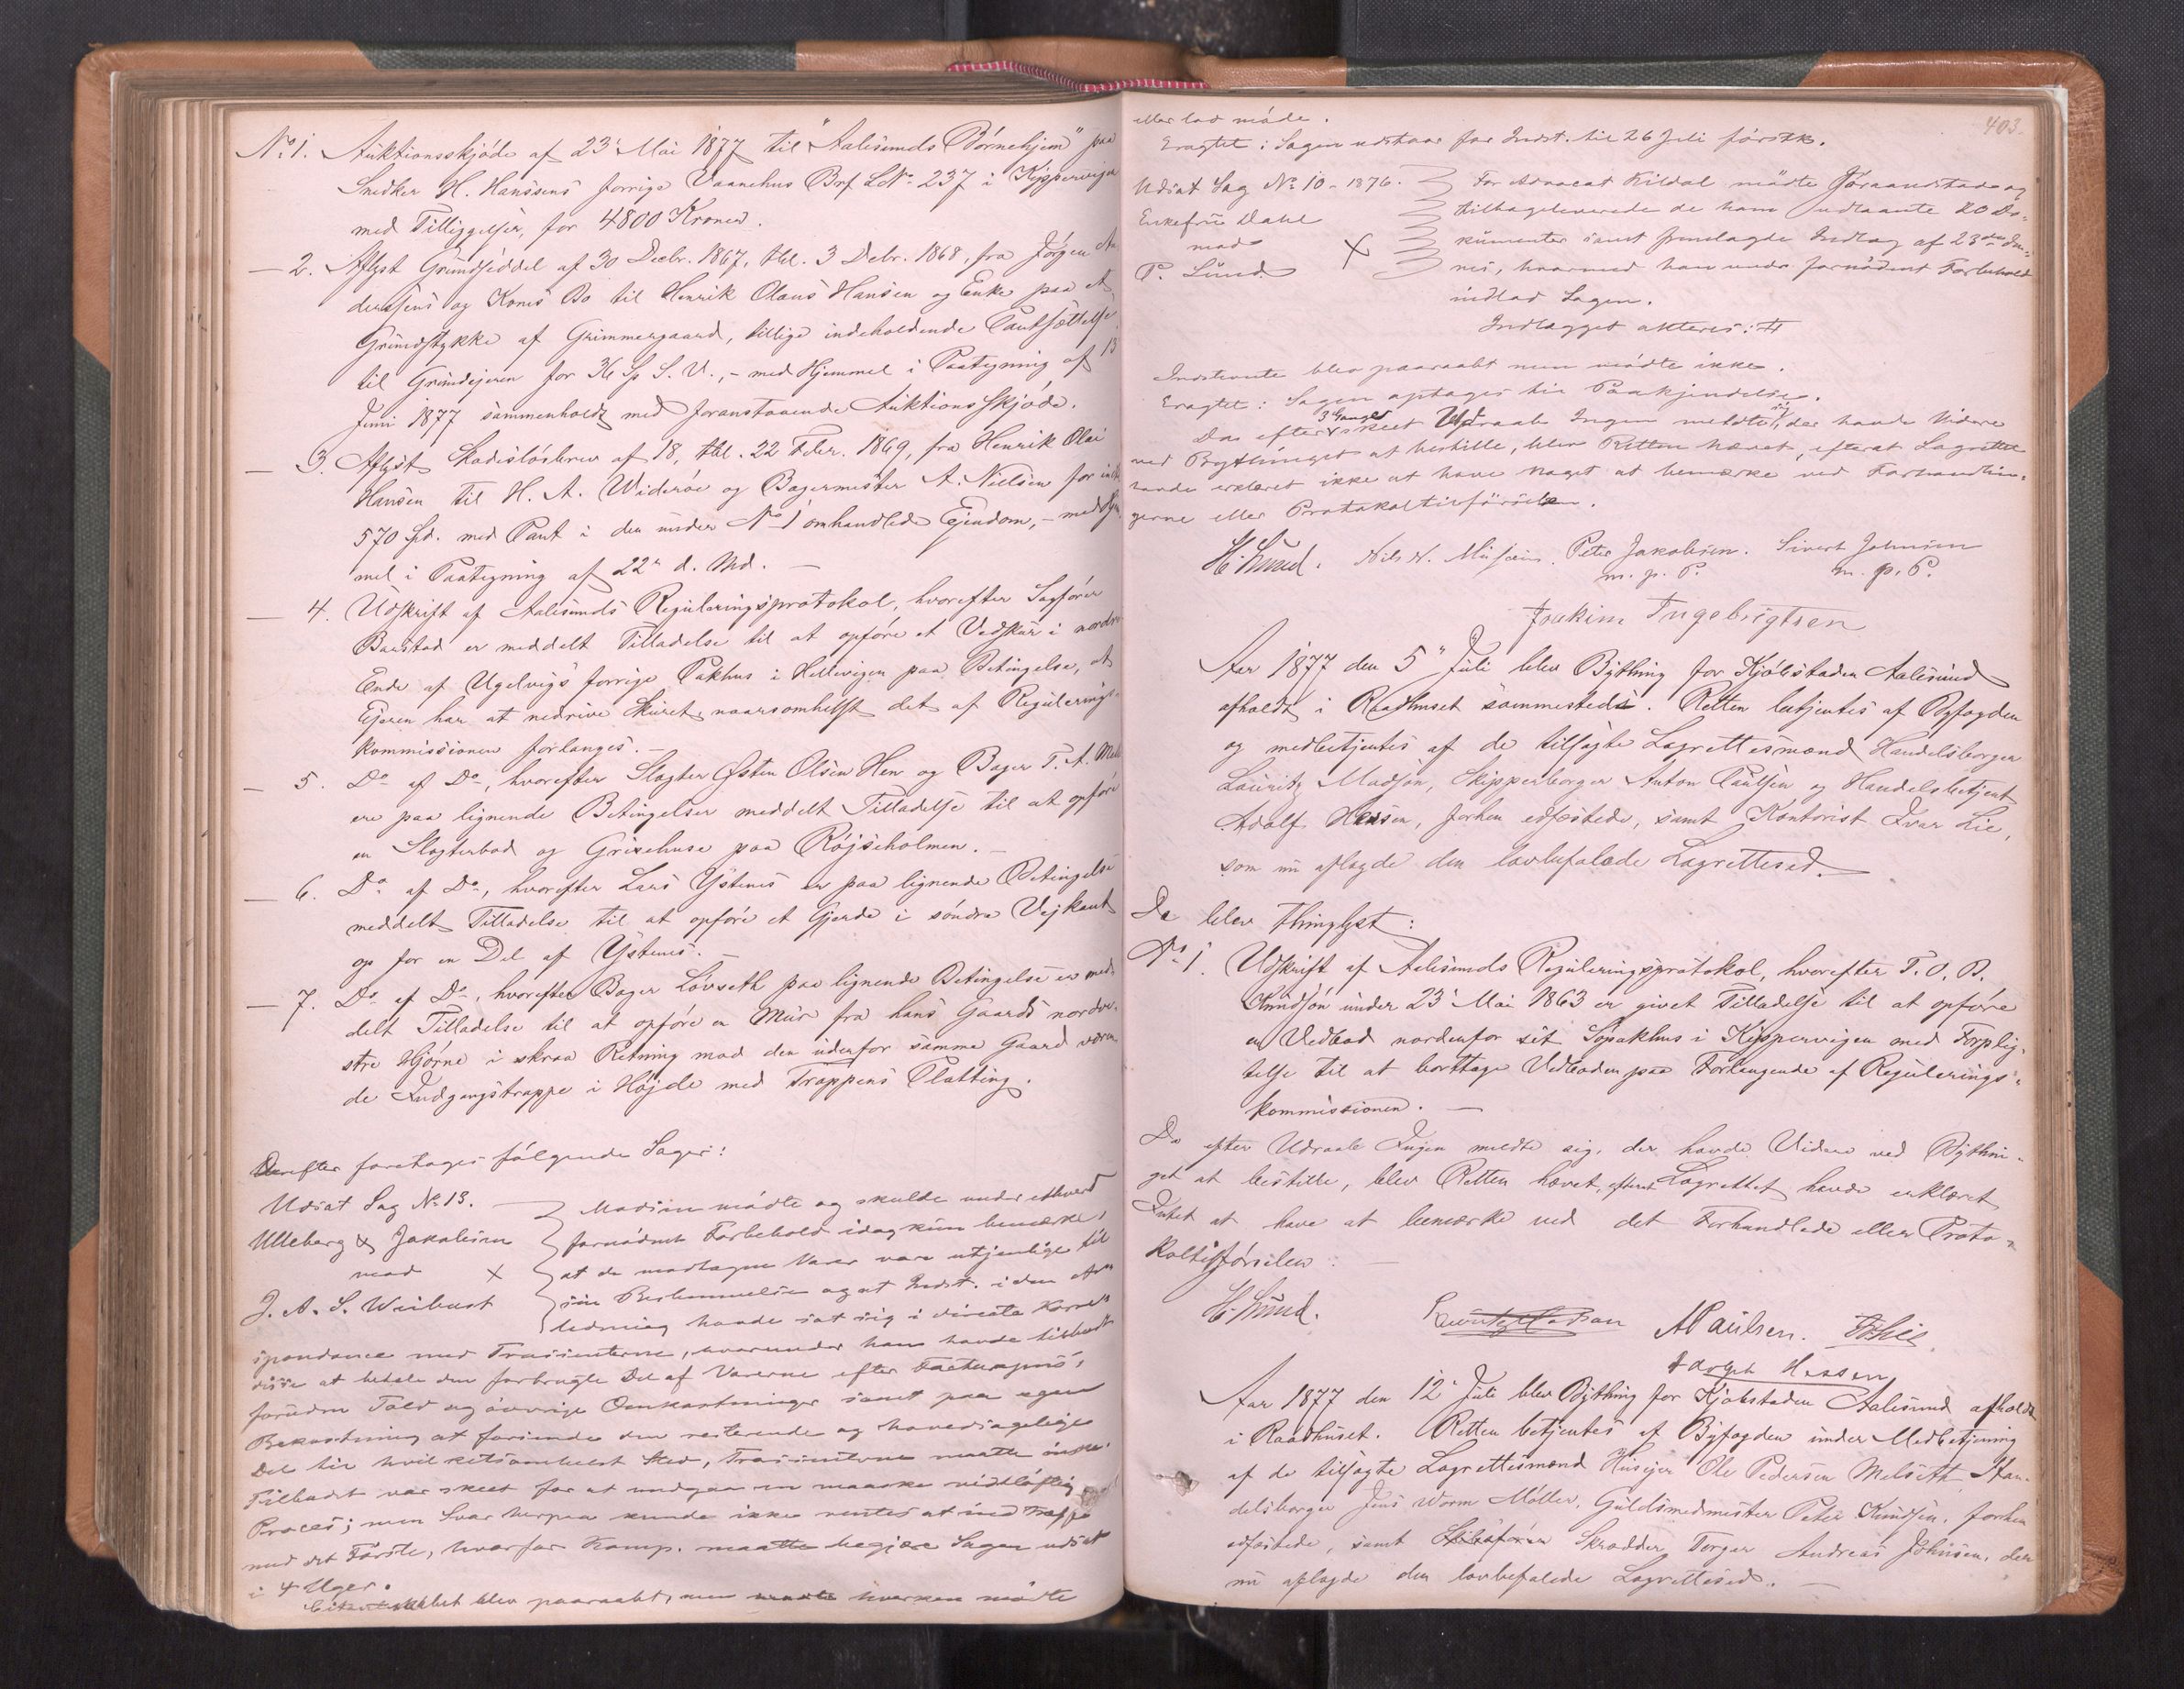 No 1. Auktionsskjøde af 23' Mai 1877 til "Aalesunds Børnehjem" paa
Snedker H. Hansens forrige Vaanehus Brf LNo 237 i Kipperviga
med Tilliggelser, for 4800 Kroner.
— 2. Aflyst Grundseddel af 30 Decbr. 1867, tbl. 3 Debr. 1868, fra Jørgen An
dersens og Kones Bo til Henrik Olaus Hansen og Enke paa et
Grundstykke af Grimmergaard, tillige indeholdende Pantsættelse
til Grundejeren for 36 Sp S. V., - med Hjemmel i Paategning af 13
Juni 1877 sammenholdt med foranstaaende Auktionsskjøde.
— 3. Aflyst Skadesløsbrev af 18, tbl. 22 Febr. 1869, fra Henrik Olai
Hansen til H. A. Widerøe og Bagermester A. Nielsen for indtil
570 Spd. med Pant i den under No 1 omhandlede Ejendom, - med Hjem
mel i Paategning af 22' d. Md. —
— 4. Udskrift af Aalesunds Reguleringsprotokol, hvorefter Sagfører
Barstad er meddelt Tilladelse til at opføre et Vedskur i nordre
Ende af Ugelvigs forrige Pakhus i Hellevigen paa Betingelse, at
Ejeren har at nedrive Skuret, naarsomhelst det af Regulerings-
kommissionen forlanges. —
— 5. Do af Do, hvorefter Slagter Østen Olsen Hen og Bager T. A.
ere paa lignende Betingelser meddelt Tilladelse til at opføre
en Slagterbod og Grisehuse paa Røjseholmen. —
— 6. Do af Do, hvorefter Lars Ystenes er paa lignende Betingelse
meddelt Tilladelse til at opføre et Gjerde i søndre Vejkant
op for en Del af Ystenes. —
— 7. Do af Do, hvorefter Bager Løvseth paa lignende Betingelse er med-
delt Tilladelse til at opføre en Mur fra hans Gaards nordre
stre Hjørne i skraa Retning mod den udenfor samme Gaard væren
de Indgangstrappe i Højde med Trappens Platting.
Derefter foretages følgende Sager:
Udsat Sag No 13.
Ulleberg & Jakobsen
mod
J. A. S. Weibust
Madsen mødte og skulde under ethvert
fornødent Forbehold idag kun bemærke,
at de modtagne Varer vare utjenlige til
sin Bestemmelse og at Indst. i den An
ledning havde sat sig i directe Korre
spondance med Trassenterne, hvorunder han havde tilbudt
disse at betale den forbrugte Del af Varerne efter Facturapris,
foruden Told og øvrige Omkostninger samt paa egen
Bekostning at forsende den resterende og hovedsagelige
Del til hvilketsomhelst Sted, Trassenterne maatte ønske.
Tilbudet var skeet for at undgaa en maaske vidtløftig
Proces; men Svar herpaa kunde ikke ventes at ind træffe
med det Første, hvorfor Komp. maatte begjære Sagen udsat
i 4 Uger.
blev paaraabt, men hverken mødte
403.
eller lod møde.
Eragtet: Sagen udstaar for Indst. til 26 Juli førstk.
Udsat Sag No 10 - 1876.
Enkefru Dahl
mod
P. Lund
For Advocat Kildal mødte Foraanstad og
tilbageleverede de ham udlaante 20 Do-
kumenter samt fremlagde Indlæg af 23de Ju-
ni, hvormed han under fornødent Forbehold
indlod Sagen.
Indlægget akteres:
Indstevnte blev paaraabt men mødte ikke.
Eragtet: Sagen optages til Paakjendelse.
Da efter 3 Ganges skeet Udraab Ingen meldte sig, der havde Videre
ved Bythinget at bestille, blev Retten hævet, efterat Lagrettet
havde erklæret ikke at have noget at bemærke ved Forhandlin-
gerne eller Protokoltilførselen.
H. Lund. Nils N. Peter Jakobsen. Sivert Johnsen
m. p. P. m. p. P.
Joakim Ingebrigtsen
Aar 1877 den 5" Juli blev Bything for Kjøbstaden Aalesund
afholdt i Raadhuset sammesteds. Retten betjentes af Byfogden
og medbetjentes af de tilsagte Lagrettesmænd Handelsborger
Lauritz Madsøn, Skipperborger Anton Paulsen og Handelsbetjent
Adolf Hessen, forhen edfæstede, samt Kontorist Ivar Lie,
som nu aflagde den lovbefalede Lagrettesed.
Da blev thinglyst:
No 1. Udskrift af Aalesunds Reguleringsprotokol, hvorefter T. O. B.
Knudsøn under 23' Mai 1863 er givet Tilladelse til at opføre
en Vedbod nordenfor sit Søpakhus i Kippervigen med Forplig-
telse til at borttage Vedboden paa Forlangende af Regulerings-
kommissionen. —
Da efter Udraab Ingen meldte sig, der havde Videre ved Bythin-
get at bestille, blev Retten hævet, efterat Lagrettet havde erklæret
Intet at have at bemærke ved det Forhandlede eller Proto-
koltilførselen: —
H. Lund. Lauritz Madsøn A Paulsen. I Lie
Adolph Hessen
Aar 1877 den 12' Juli blev Bything for Kjøbstaden Aalesund afholdt
i Raadhuset. Retten betjentes af Byfogden under Medbetjening
af de tilsagte Lagrettesmænd Husejer Ole Pedersen Melseth, Han-
delsborger Jens Worm Møller, Guldsmedmester Peter Knudsen, forhen
edfæstede, samt Skrædder Torger Andreas Johnsen, der
nu aflagde den lovbefalede Lagrettesed. —